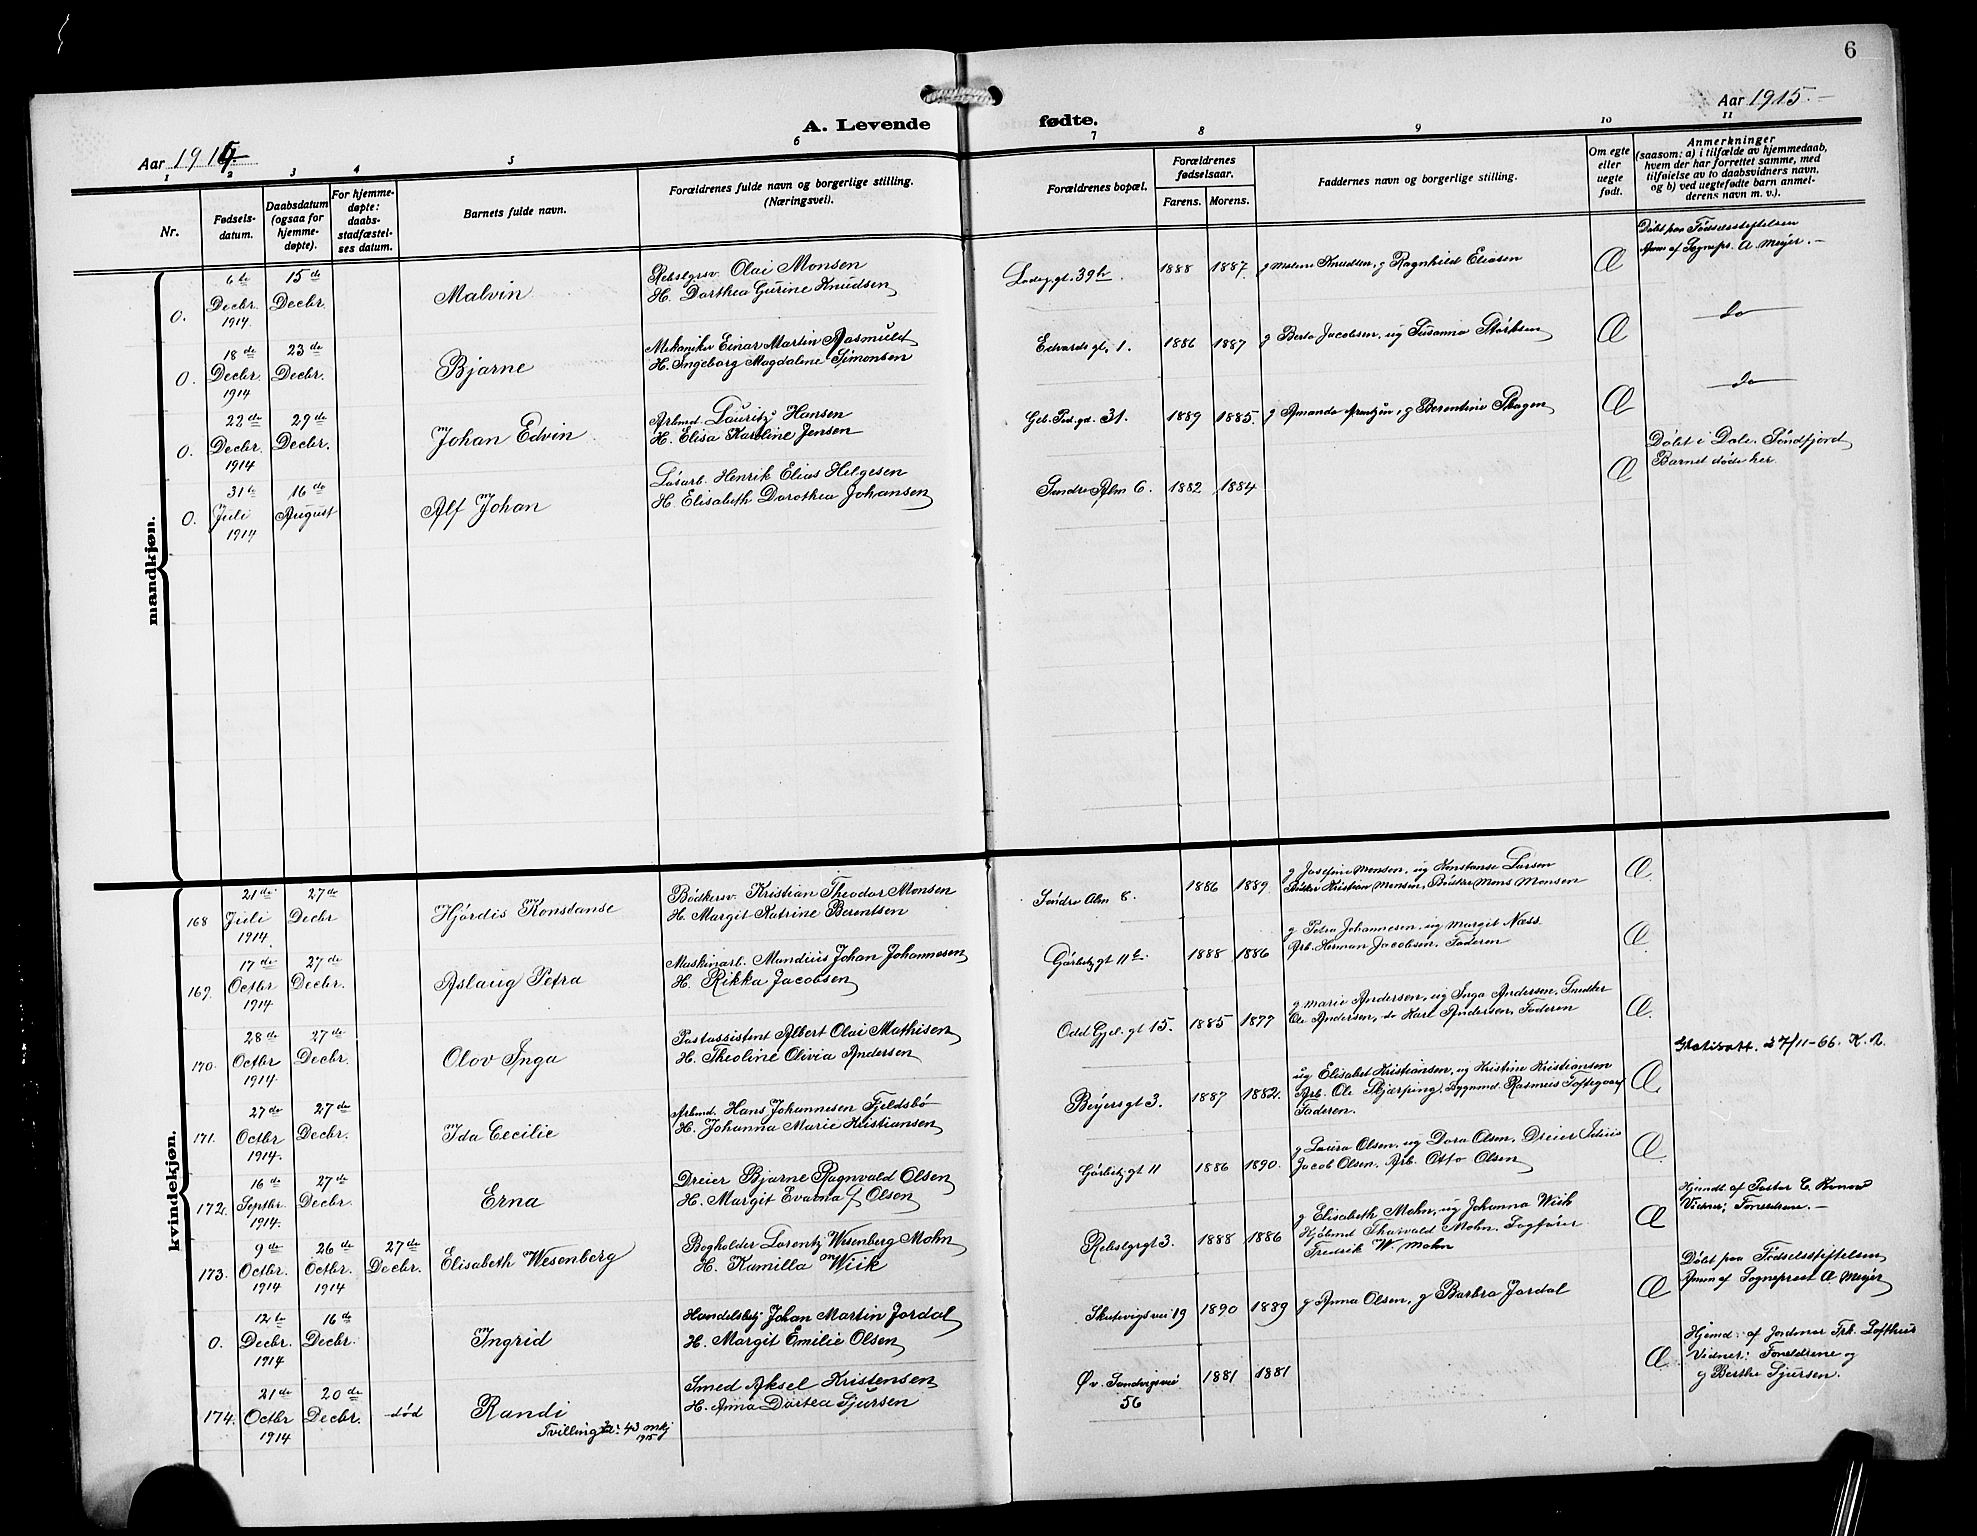 6
Aar 1914
A. Levende fødte.
Aar 1915.
1 2 3 4 5 6 7 8 9 10 11
Nr.
Fødsels-
datum.
Daabsdatum
(ogsaa for
hjemme-
døpte).
For hjemme-
døpte:
daabs-
stadfæstel-
ses datum.
Barnets fulde navn.
Forældrenes fulde navn og borgerlige stilling.
(Næringsvei).
Forældrenes bopæl.
Forældrenes
fødselsaar.
Farens. Morens.
Faddernes navn og borgerlige stilling.
Om egte
eller
uegte
født.
Anmerkninger
(saasom: a) i tilfælde av hjemmedaab,
hvem der har forrettet samme, med
tilføielse av to daabsvidners navn,
og b) ved uegtefødte barn anmel-
derens navn m. v.).
mandkjøn.
0. 6te Decbr. 1914. 15de Decbr. Malvin
Rebslgrsv. Olai Monsen
H. Dorthea Gurine Knudsen
39b. 1888 1887. g Malene Knudsen, g Ragnhild Eliasen Æ
Døbt paa Fødselsstiftelsen
Anm af Sognepr. A Meyer.
0. 18de Decbr. 1914 23de Decbr. Bjarne
Mekaniker Einar Martin
H. Ingeborg Magdalene Simonsen
Edvards gt. 1. 1886 1887 g Berta Jacobsen, ug Susanna Størksen Æ
do
0. 22de Decbr. 1914 29de Decbr. Johan Edvin
Arbmd. Lauritz Hansen
H. Elisa Karoline Jensen
31. 1889 1885. g Amanda, g Berentine Skagen Æ
do
0. 31te Juli 1914 16de August Alf Johan
Løsarb. Henrik Elias Helgesen
H. Elisabeth Dorothea Johansen
Søndre Alm 6. 1882 1884 Æ
Døbt i Dale. Søndfjord
Barnet døde her.
kvindekjøn.
168 21de Juli 1914. 27de Decbr Hjørdis Konstanse
Bødkersv. Kristian Theodor Monsen
H. Margit Katrine Berentsen
Søndre Alm 8. 1886 1889.
g Josefine Monsen, ug Konstanse Larsen
Bødker Kristian Monsen, Bødker Mons Monsen Æ
169. 17de Octbr 1914 27de Decbr. Aslaug Petra
Maskinarb. Mandius Johan Johannesen
H. Rikka Jacobsen
Gørbitz gt 11 1888 1886
g Petra Johannesen, ug Margit Næss
Arb. Herman Jacobsen, Faderen Æ
170. 28de Octbr 1914. 27de Decbr. Olov Inga
Postassistent Albert Olai Mathisen
H. Theoline Olivia Andersen
Odd Gjel. gt 15. 1885 1877
g Marie Andersen, ug Inga Andersen, Snedker
Ole Andersen, do Karl Andersen, Faderen Æ
171. 27de Octbr 1914. 27de Decbr. Ida Cecilie
Arbmd. Hans Johannesen Fjeldsbø
H. Johanna Marie Kristiansen
Beyersgt 3. 1887 1882.
ug Elisabet Kristiansen, ug Kristine Kristiansen
Arb. Ole Skjærping, Bygnmd. Rasmus Toftegaard
Faderen. Æ
27/11-66. K. A.
172. 16de Septbr. 1914. 27de Decbr. Erna
Dreier Bjarne Ragnvald Olsen
H. Margit Evanna Olsen
Gørbitz gt 11 1886 1890.
g Laura Olsen, ug Dora Olsen, Dreier Julius
Jacob Olsen, Arb. Otto Olsen Æ
173. 9de Octbr. 1914 26de Octbr. 1914 27de Decbr. Elisabeth Wesenberg
Bogholder Lorentz Wesenberg Mohn
H. Kamilla Wiik
Rebslgrgt 3. 1888 1886
g Elisabeth Mohn, ug Johanna Wiik
Kjøbmd Thorvald Mohn, Sagfører
Fredrik W. Mohn Æ
Hjemdt af Pastor C. Konow
Vidner; Forældrene.
0. 12te Decbr. 1914 16de Decbr. Ingrid
Handelsbtj Johan Martin Jordal
H. Margit Emilie Olsen
Skutevigsvei 19 1890 1889 g Anna Olsen, g Barbra Jordal Æ
Døbt paa Fødselsstiftelsen
Anm af Sogneprest A Meyer
174. 21de Octbr 1914 20de Decbr. død Randi
Tvilling: 43 mkj
1915
Smed Aksel Kristensen
H. Anna Dortea Sjursen
Øv. Sandvigsvei
56 1881 1881 Æ
Hjemd. af Jordmor Frk. Lofthus
Vidner: Forældrene og
g Berthe Sjursen.